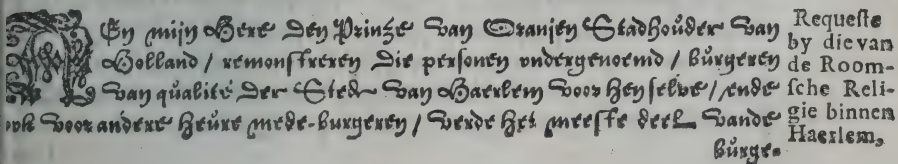 AEn mijn Here den Prinze van Oranjen Stadhouder van
Holland / remonstreren die personen ondergenoemd / burgeren
van qualité der Stede van Haerlem voor hen selve / ende
ook voor andere heure mede-burgeren / verde het meeste deel vande
burge-
Requeste
by die van
de Room-
sche Reli-
gie binnen
Haerlem,